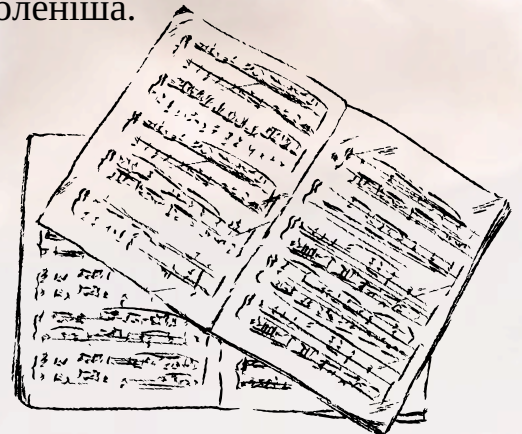 оленіша.